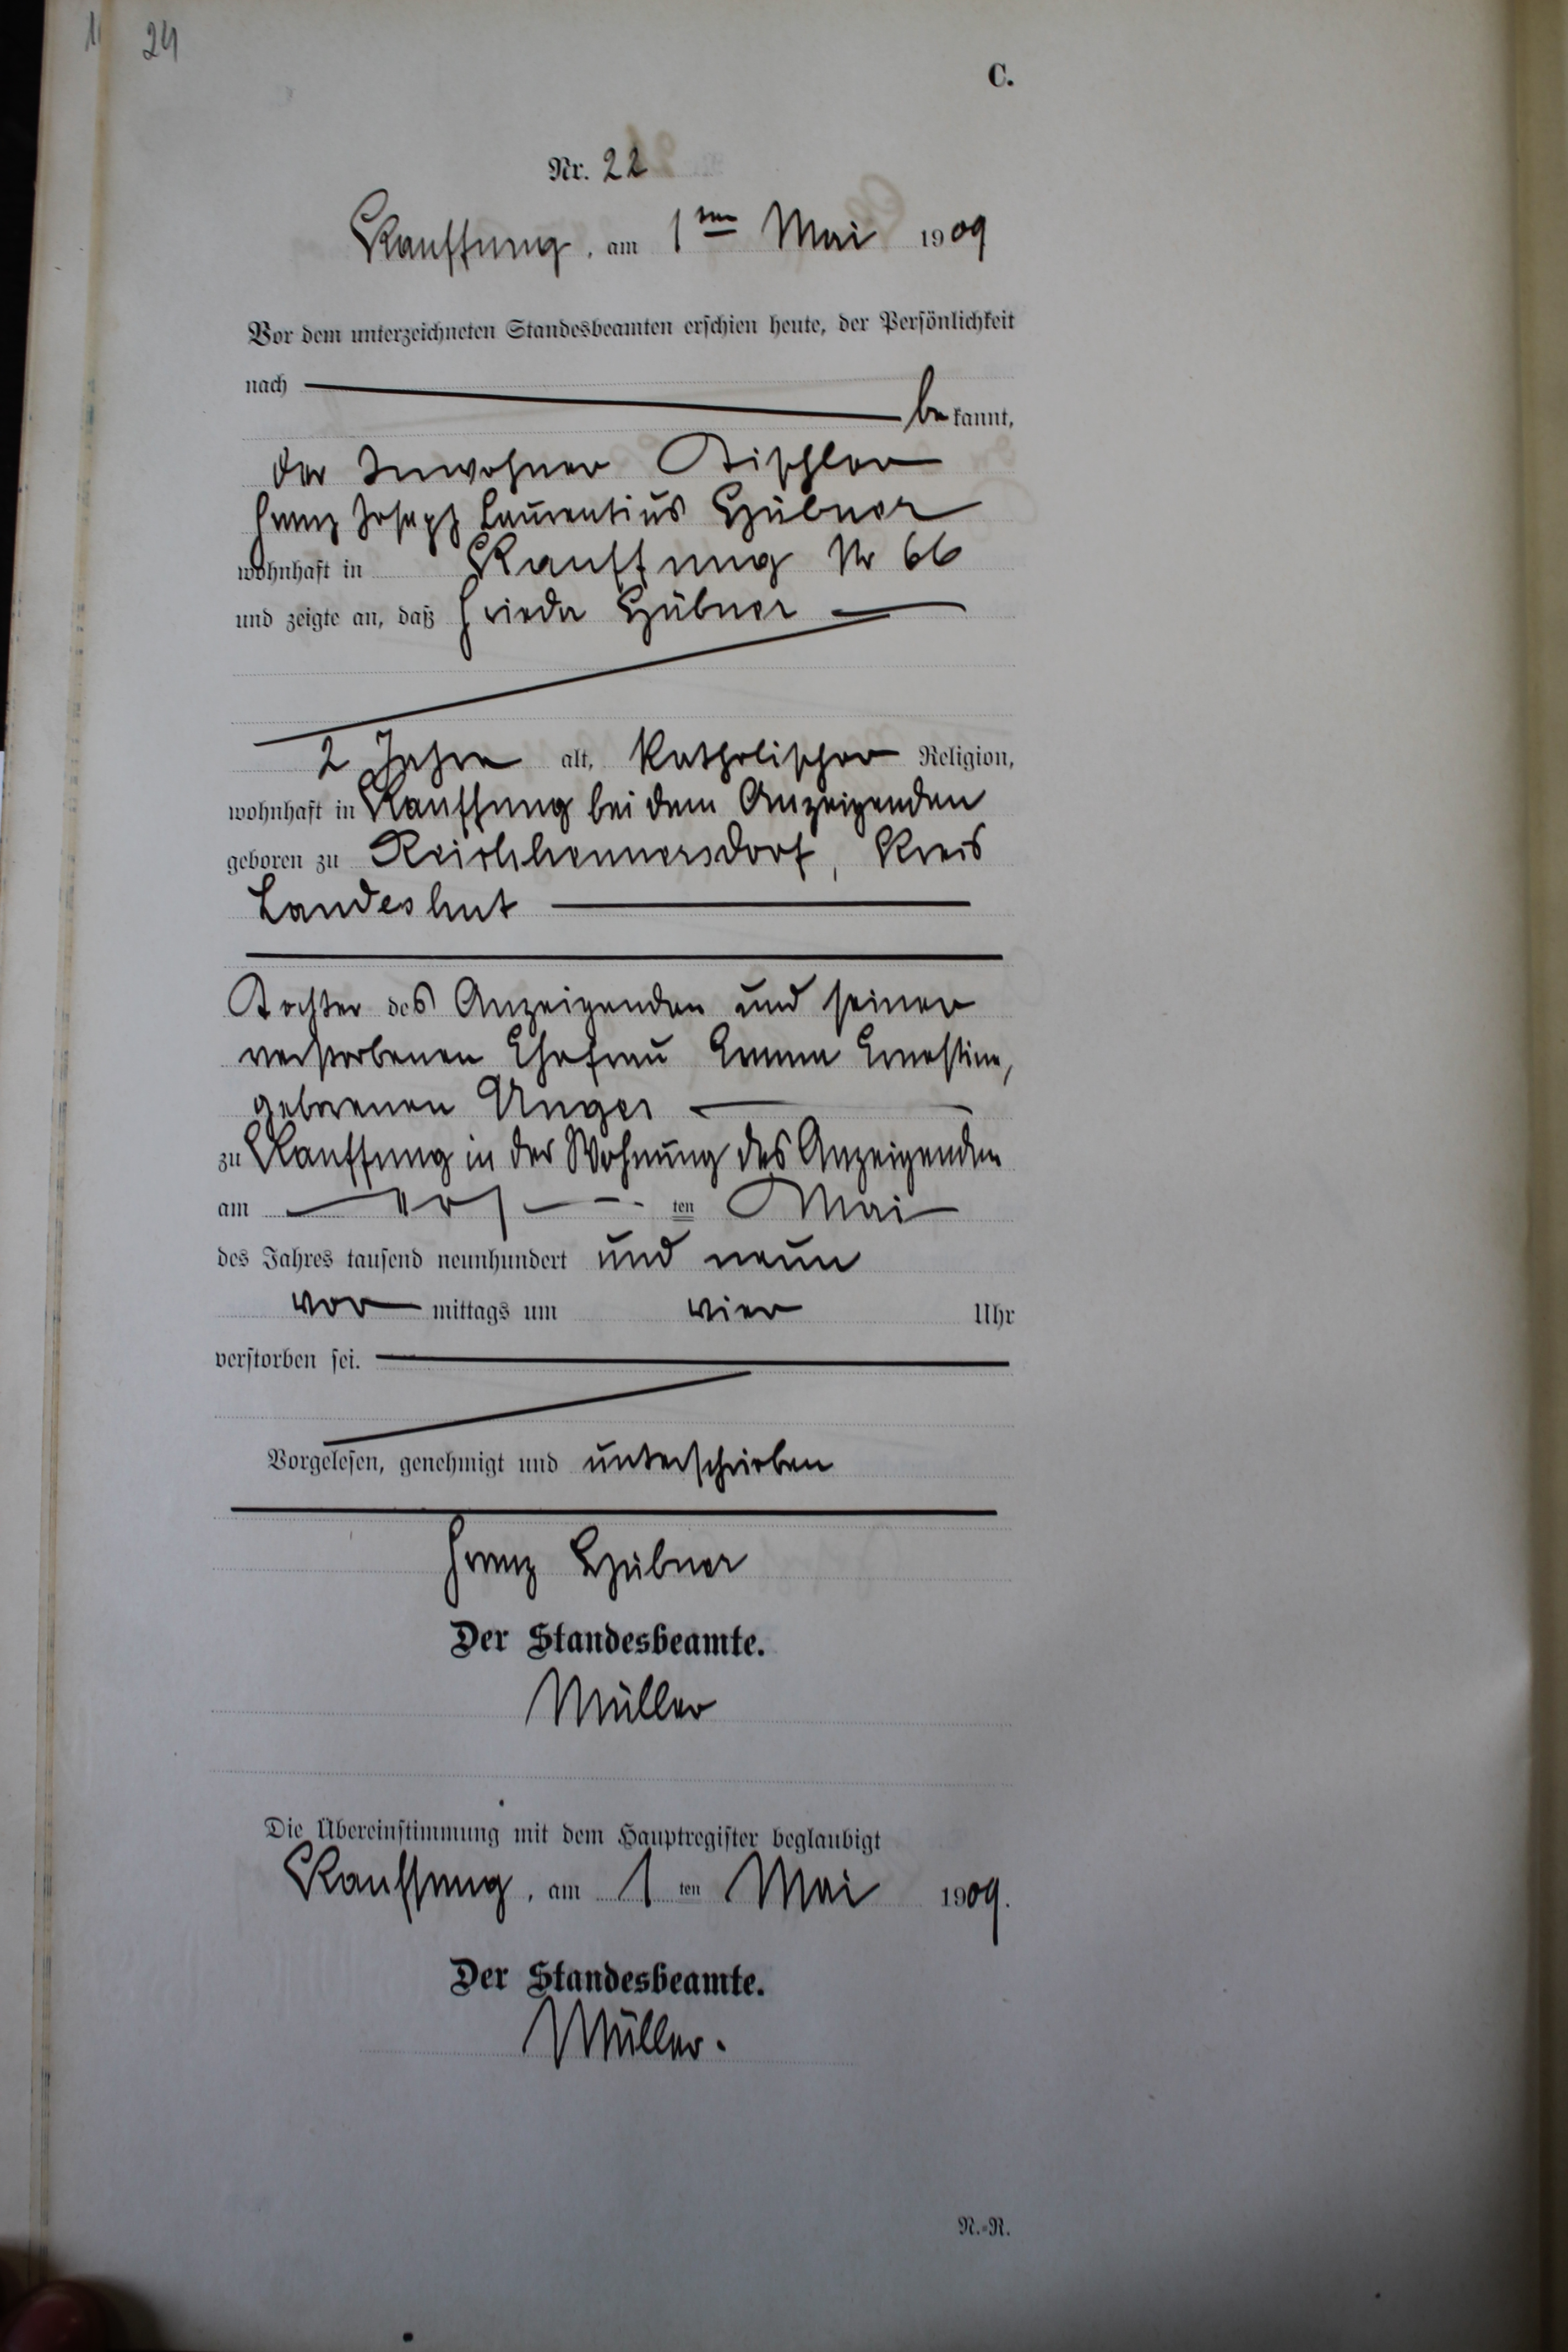 24
C.
Nr. 22
Kauffung, am 1ten Mai 1909
Vor dem unterzeichneten Standesbeamten erschien heute, der Persönlichkeit
nach
bekannt,
der Inwohner Tischler
Franz Joseph Laurentius Hübner
wohnhaft in Kauffung Nr 66
und zeigte an, daß Frieda Hübner
2 Jahre alt, katholischer Religion,
wohnhaft in Kauffung bei dem Anzeigenden
geboren zu Reichhennersdorf, Kreis
Landeshut
Tochter des Anzeigenden und seiner
verstorbenen Ehefrau Emma Ernestine,
geborenen Unger
zu Kauffung in der Wohnung des Anzeigenden
am ersten Mai
des Jahres tausend neunhundert und neun
vormittags um vier Uhr
verstorben sei.
Vorgelesen, genehmigt und unterschrieben
Franz Hübner
Der Standesbeamte.
Müller
Die Übereinstimmung mit dem Hauptregister beglaubigt
Kauffung, am 1ten Mai 1909.
Der Standesbeamte.
Müller.
N.=R.